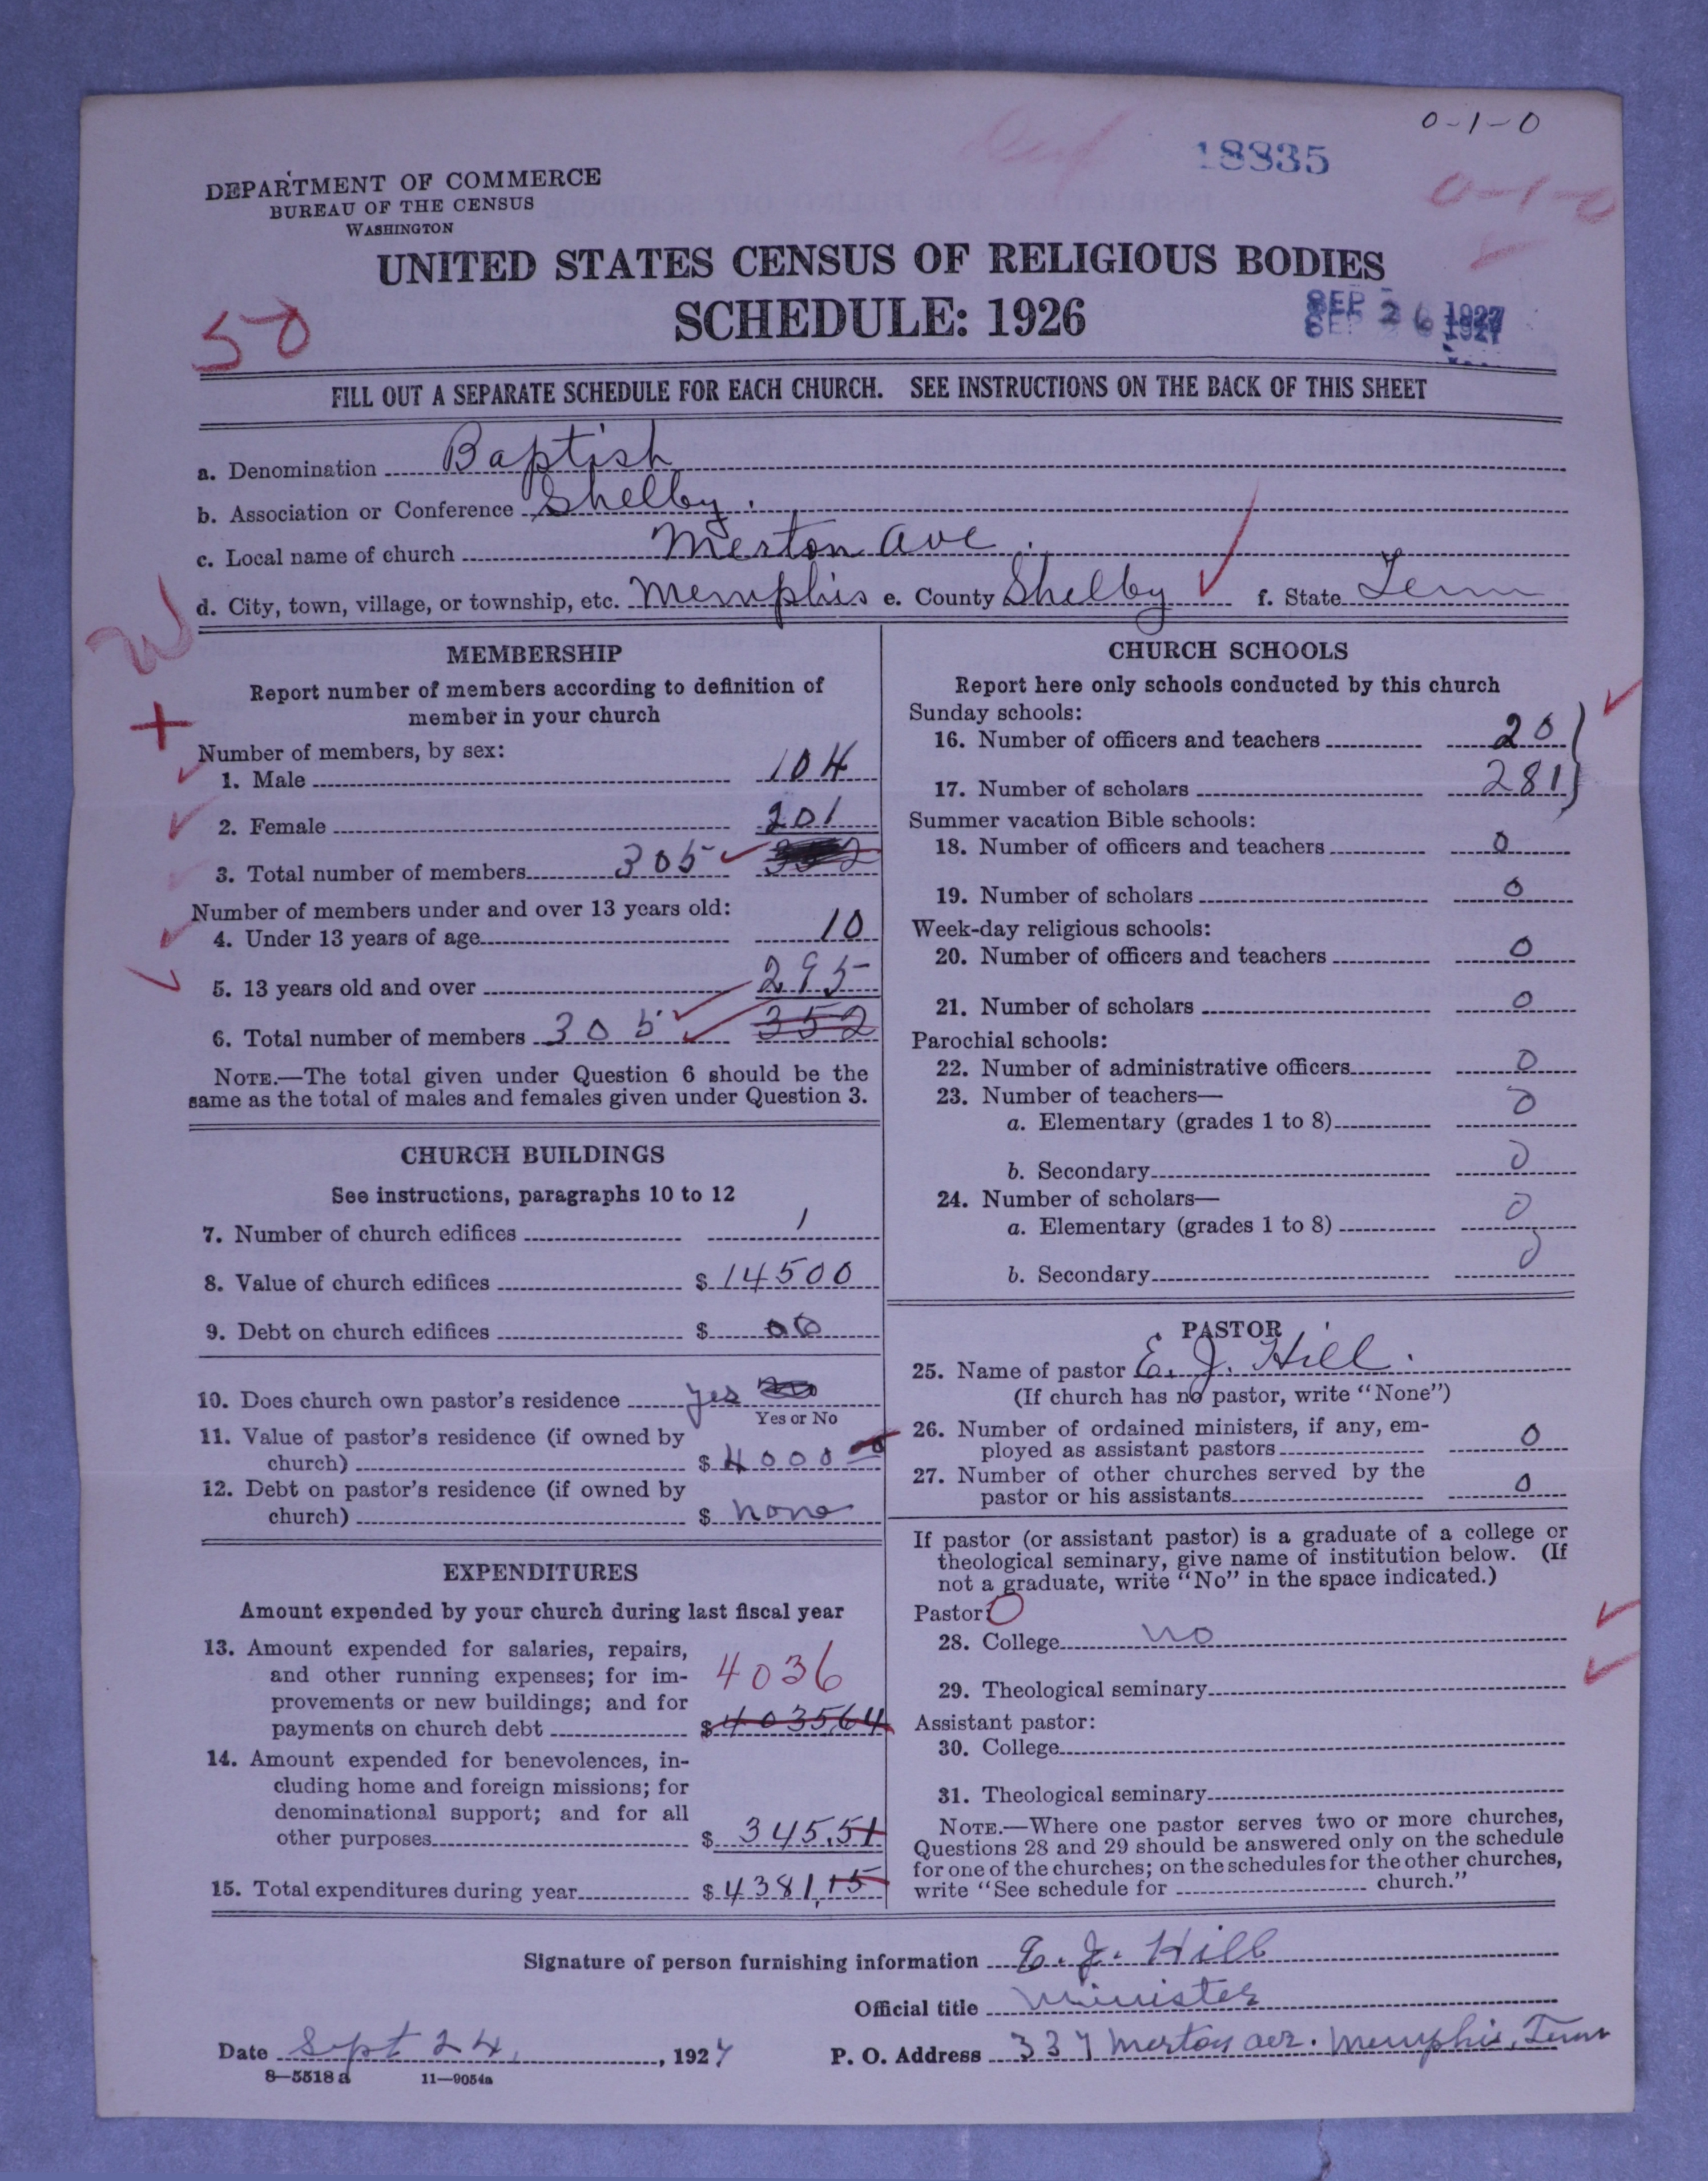 0-1-0
18835
0-1-0
DEPARTMENT OF COMMERCE
BUREAU OF THE CENSUS
WASHINGTON
UNITED STATES CENSUS OF RELIGIOUS BODIES
SCHEDULE: 1926
SEP 26 1927
50
FILL OUT A SEPARATE SCHEDULE FOR EACH CHURCH. SEE INSTRUCTIONS ON THE BACK OF THIS SHEET
a. Denomination Baptist
b. Association or Conference Shelby.
c. Local name of church Merton Ave.
d. City, town, village, or township, etc. Memphis e. County Shelby f. State Tenn
W
+
MEMBERSHIP
Report number of members according to definition of
member in your church
Number of members, by sex:
1. Male 104
2. Female 201
3. Total number of members 305
Number of members under and over 13 years old:
4. Under 13 years of age 10
5. 13 years old and over 295
6. Total number of members 305 352
NOTE.—The total given under Question 6 should be the
same as the total of males and females given under Question 3.
CHURCH BUILDINGS
See instructions, paragraphs 10 to 12
7. Number of church edifices 1
8. Value of church edifices $ 14500
9. Debt on church edifices $ 00
10. Does church own pastor's residence yes
Yes or No
11. Value of pastor's residence (if owned by
church) $ 4000
12. Debt on pastor's residence (if owned by
church) $ none
EXPENDITURES
Amount expended by your church during last fiscal year
13. Amount expended for salaries, repairs,
and other running expenses; for im-
provements or new buildings; and for
payments on church debt 4036 $ 403564
14. Amount expended for benevolences, in-
cluding home and foreign missions; for
denominational support; and for all
other purposes $ 345.51
15. Total expenditures during year $ 4381.15
CHURCH SCHOOLS
Report here only schools conducted by this church
Sunday schools:
16. Number of officers and teachers 20
17. Number of scholars 281
Summer vacation Bible schools:
18. Number of officers and teachers 0
19. Number of scholars 0
Week-day religious schools:
20. Number of officers and teachers 0
21. Number of scholars 0
Parochial schools:
22. Number of administrative officers 0
23. Number of teachers—
a. Elementary (grades 1 to 8) 0
b. Secondary 0
24. Number of scholars—
a. Elementary (grades 1 to 8) 0
b. Secondary 0
PASTOR
25. Name of pastor E. J. Hill.
(If church has no pastor, write "None")
26. Number of ordained ministers, if any, em-
ployed as assistant pastors 0
27. Number of other churches served by the
pastor or his assistants 0
If pastor (or assistant pastor) is a graduate of a college or
theological seminary, give name of institution below. (If
not a graduate, write "No" in the space indicated.)
Pastor: 0
28. College no
29. Theological seminary
Assistant pastor:
30. College
31. Theological seminary
NOTE.—Where one pastor serves two or more churches,
Questions 28 and 29 should be answered only on the schedule
for one of the churches; on the schedules for the other churches,
write "See schedule for church."
Signature of person furnishing information E. J. Hill
Official title Minister
Date Sept 24, 1927 P. O. Address 337 Merton ave. Memphis, Tenn
8—5518a 11—9054a